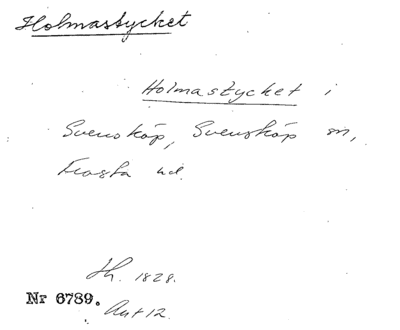 Holmastycket
Holmastycket i
Svensköp, Svensköp sn,
Frosta hd.
Jh. 1828.
Nr 6789.
Akt 12.